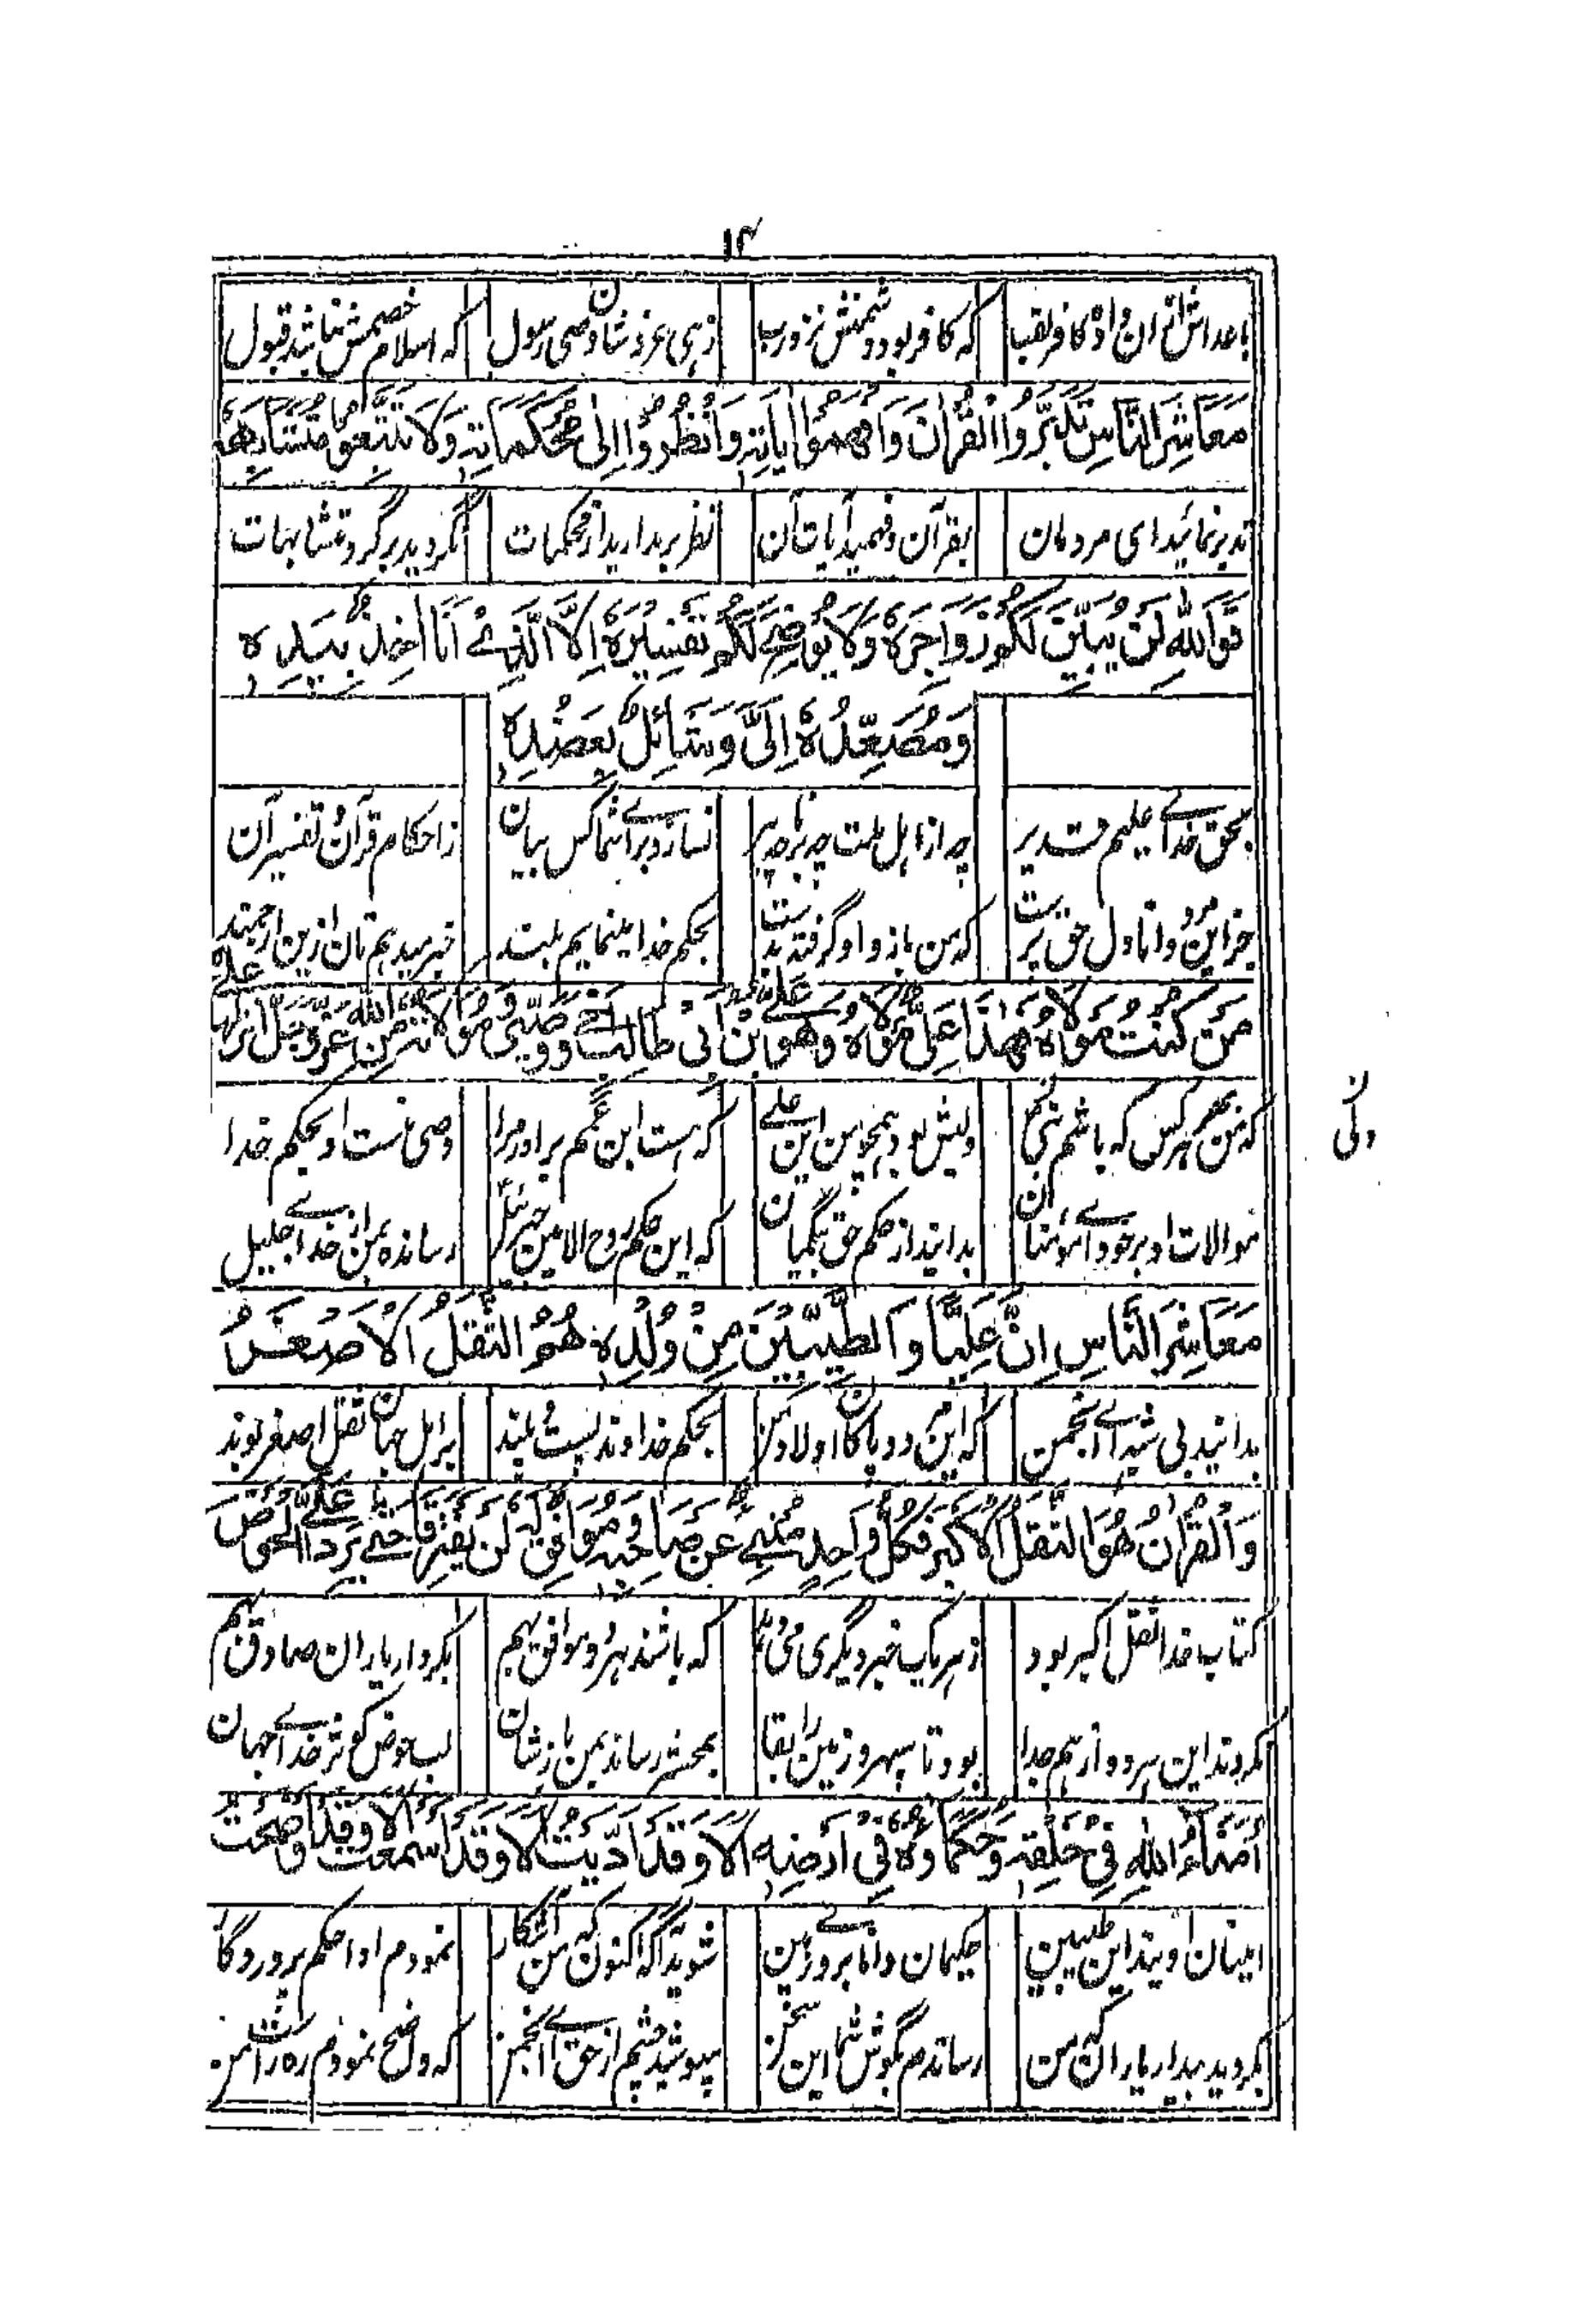 ۱۴
که کافر بود دشمنش نزد رب زهی عز و شان وصی رسول که اسلام خصمش نباشد قبول
مَعَاشِرَ النَّاسِ تَدَبَّرُوا الْقُرْآنَ وَافْهَمُوا آيَاتِهِ وَانْظُرُوا إِلَىٰ مُحْكَمَاتِهِ وَلَا تَتَّبِعُوا مُتَشَابِهَهُ
تدبر نمائید ای مردمان بقرآن و فهمید آیات آن نظر بر بدارید از محکمات نگردید بر گرد متشابهات
فَوَاللهِ لَنْ يُبَيِّنَ لَكُمْ زَوَاجِرَهُ وَلَا يُوَضِّحُ لَكُمْ تَفْسِيرَهُ إِلَّا الَّذِي أَنَا آخِذٌ بِيَدِهِ
وَمُصَعِّدُهُ إِلَيَّ وَشَائِلٌ بِعَضُدِهِ
بحق خدای علیم قدیر چه از اهل ملت چه برنا چه پیر نسازد برای شما کس بیان ز احکام قرآن و تفسیر آن
جز این مرد دانا دل حق پرست که من بازو او گرفته بدست بحکم خدا مینمایم بلند خبر میدهم تان ازین ارجمند
مَنْ كُنْتُ مَوْلَاهُ فَهٰذَا عَلِيٌّ مَوْلَاهُ وَهُوَ عَلِيُّ بْنُ أَبِي طَالِبٍ أَخِي وَوَصِيِّي وَمُوَالَاتُهُ مِنَ اللهِ عَزَّ وَجَلَّ أَنْزَلَهَا عَلَيَّ
که من بهر هر کس که باشم نبی ولیش بود همچو من این علی که هست ابن عم برادر مرا وصی منست او بحکم خدا
موالات او بر خود ای مؤمنان بدانید از حکم حق بیگمان که این حکم روح الامین جبرئیل رسانده بمن از خدای جلیل
مَعَاشِرَ النَّاسِ إِنَّ عَلِيًّا وَالطَّيِّبِينَ مِنْ وُلْدِهِ هُمُ الثِّقْلُ الْأَصْغَرُ
بدانید بی شبه ای انجمن بحکم خداوند پست و بلند بر اهل جهان ثقل اصغر بوند
وَالْقُرْآنُ هُوَ الثِّقْلُ الْأَكْبَرُ فَكُلُّ وَاحِدٍ مُنْبِئٌ عَنْ صَاحِبِهِ وَمُوَافِقٌ لَهُ لَنْ يَفْتَرِقَا حَتَّىٰ يَرِدَا عَلَيَّ الْحَوْضَ
کتاب خدا ثقل اکبر بود که باشند هر دو موافق بهم بکردار یاران صادق بهم
نگردند این هر دو از هم جدا بود تا سپهر و زمین را بقا بمحشر رساند بمن بازشان لب حوض کوثر خدای جهان
أُمَنَاءُ اللهِ فِي خَلْقِهِ وَحُكَمَاؤُهُ فِي أَرْضِهِ أَلَا وَقَدْ أَدَّيْتُ أَلَا وَقَدْ أَسْمَعْتُ أَلَا وَقَدْ أَوْضَحْتُ
امینان اویند این طیبین حکیمان دانا بروی زمین شوید آگه اکنون که من آشکار نمودم ادا حکم پروردگار
رساندم بگوش شما این سخن بپوشید چشم از حق ای انجمن که واضح نمودم ره راست من